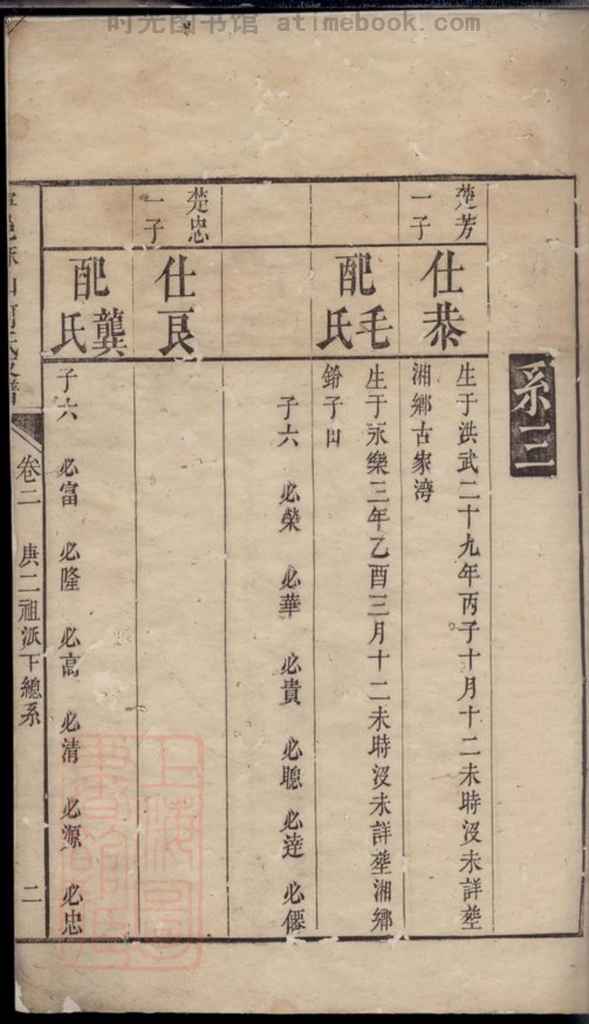 时光图书馆 atimebook.com
系二
楚芳
一子
仕恭
生于洪武二十九年丙子十月十二未時沒未詳塟
湘鄉古家湾
配毛氏
生于永樂三年乙酉三月十二未時沒未詳塟湘鄉
鎊子山
子六 必榮 必華 必貴 必聰 必達 必僊
楚忠
一子
仕良
配龔氏
子六 必富 必隆 必高 必清 必源 必忠
卷二 庚二祖派下總系 二